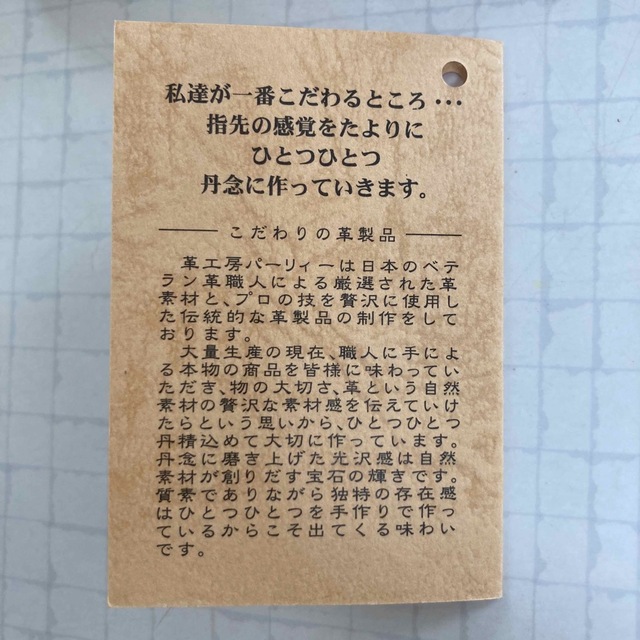 私達が一番こだわるところ・・・
指先の感覚をたよりに
ひとつひとつ
丹念に作っていきます。
こだわりの革製品
革工房パーリィーは日本のベテ
ラン革職人による厳選された革
素材と、プロの技を贅沢に使用し
た伝統的な革製品の制作をして
おります。
大量生産の現在、職人に手によ
る本物の商品を皆様に味わってい
ただき、物の大切さ、革という自然
素材の贅沢な素材感を伝えていけ
たらという思いから、ひとつひとつ
丹積込めて大切に作っています。
丹念に磨き上げた光沢感は自然
素材が創りだす宝石の輝きです。
質素でありながら独特の存在感
はひとつひとつを手作りで作っ
ているからこそ出てくる味わい
です。